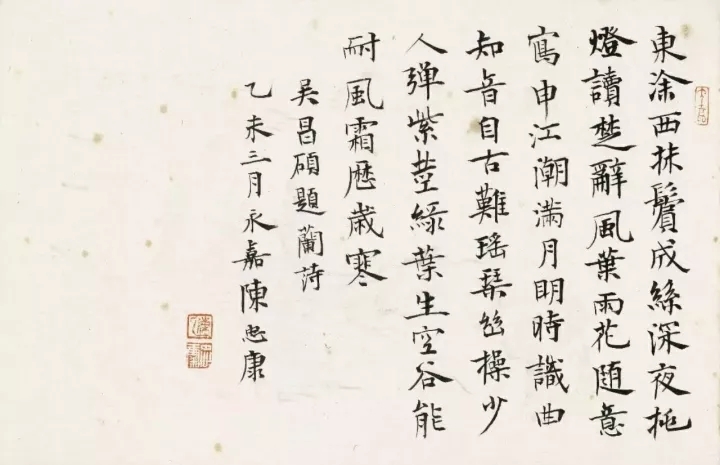 東涂西抹鬢成絲深夜挑
燈讀楚辭風葉雨花隨意
寫申江潮滿月明時識曲
知音自古難瑤琴幽操少
人彈紫莖綠葉生空谷能
耐風霜歷歲寒
吳昌碩題蘭詩
乙未三月永嘉陳忠康